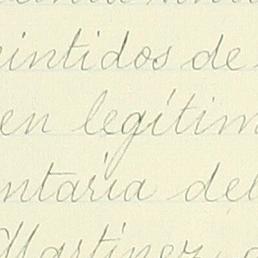 eintidos de
en legítim
ntaria del
Martínez